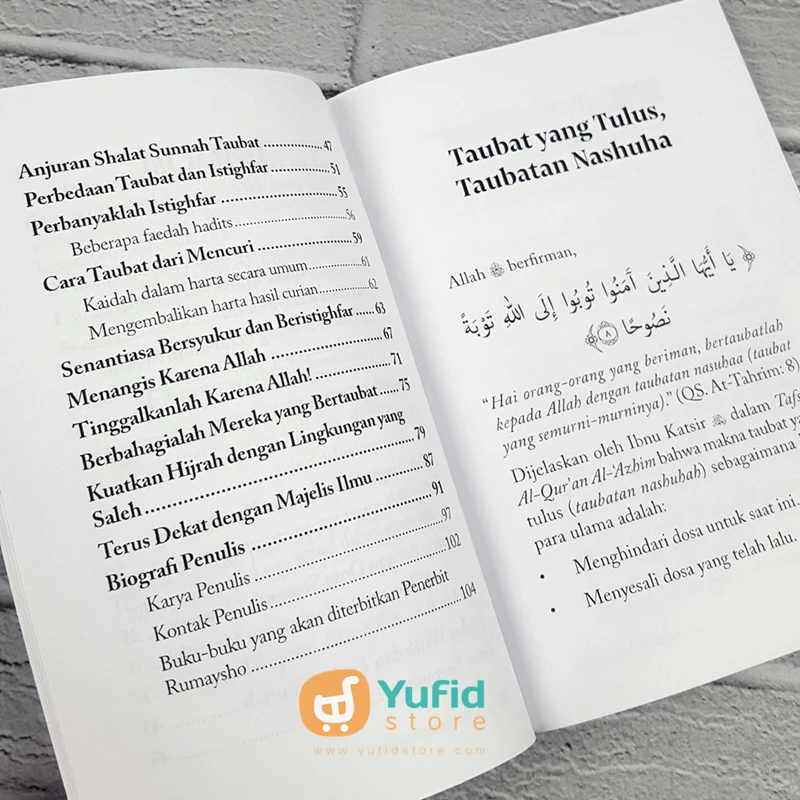 Anjuran Shalat Sunnah Taubat ................47
Perbedaan Taubat dan Istighfar ................51
Perbanyaklah Istighfar ................55
Beberapa faedah hadits ................56
Cara Taubat dari Mencuri ................59
Kaidah dalam harta secara umum ................61
Mengembalikan harta hasil curian ................62
Senantiasa Bersyukur dan Beristighfar ......63
Menangis Karena Allah ................67
Tinggalkanlah Karena Allah! ................71
Berbahagialah Mereka yang Bertaubat ......75
Kuatkan Hijrah dengan Lingkungan yang
Saleh ................79
Terus Dekat dengan Majelis Ilmu ................87
Biografi Penulis ................91
Karya Penulis ................97
Kontak Penulis ................102
Buku-buku yang akan diterbitkan Penerbit
Rumaysho ................104
Taubat yang Tulus,
Taubatan Nashuha
Allah ﷻ berfirman,
﴿ يَا أَيُّهَا الَّذِينَ آمَنُوا تُوبُوا إِلَى اللَّهِ تَوْبَةً
نَصُوحًا ٨ ﴾
“Hai orang-orang yang beriman, bertaubatlah
kepada Allah dengan taubatan nasuhaa (taubat
yang semurni-murninya).” (QS. At-Tahrim: 8)
Dijelaskan oleh Ibnu Katsir dalam
Al-Qur'an Al-‘Azhim bahwa makna taubat
tulus (taubatan nashuhah) sebagaimana
para ulama adalah:
• Menghindari dosa untuk saat ini.
• Menyesali dosa yang telah lalu.
Yufid
store
www.yufidstore.com